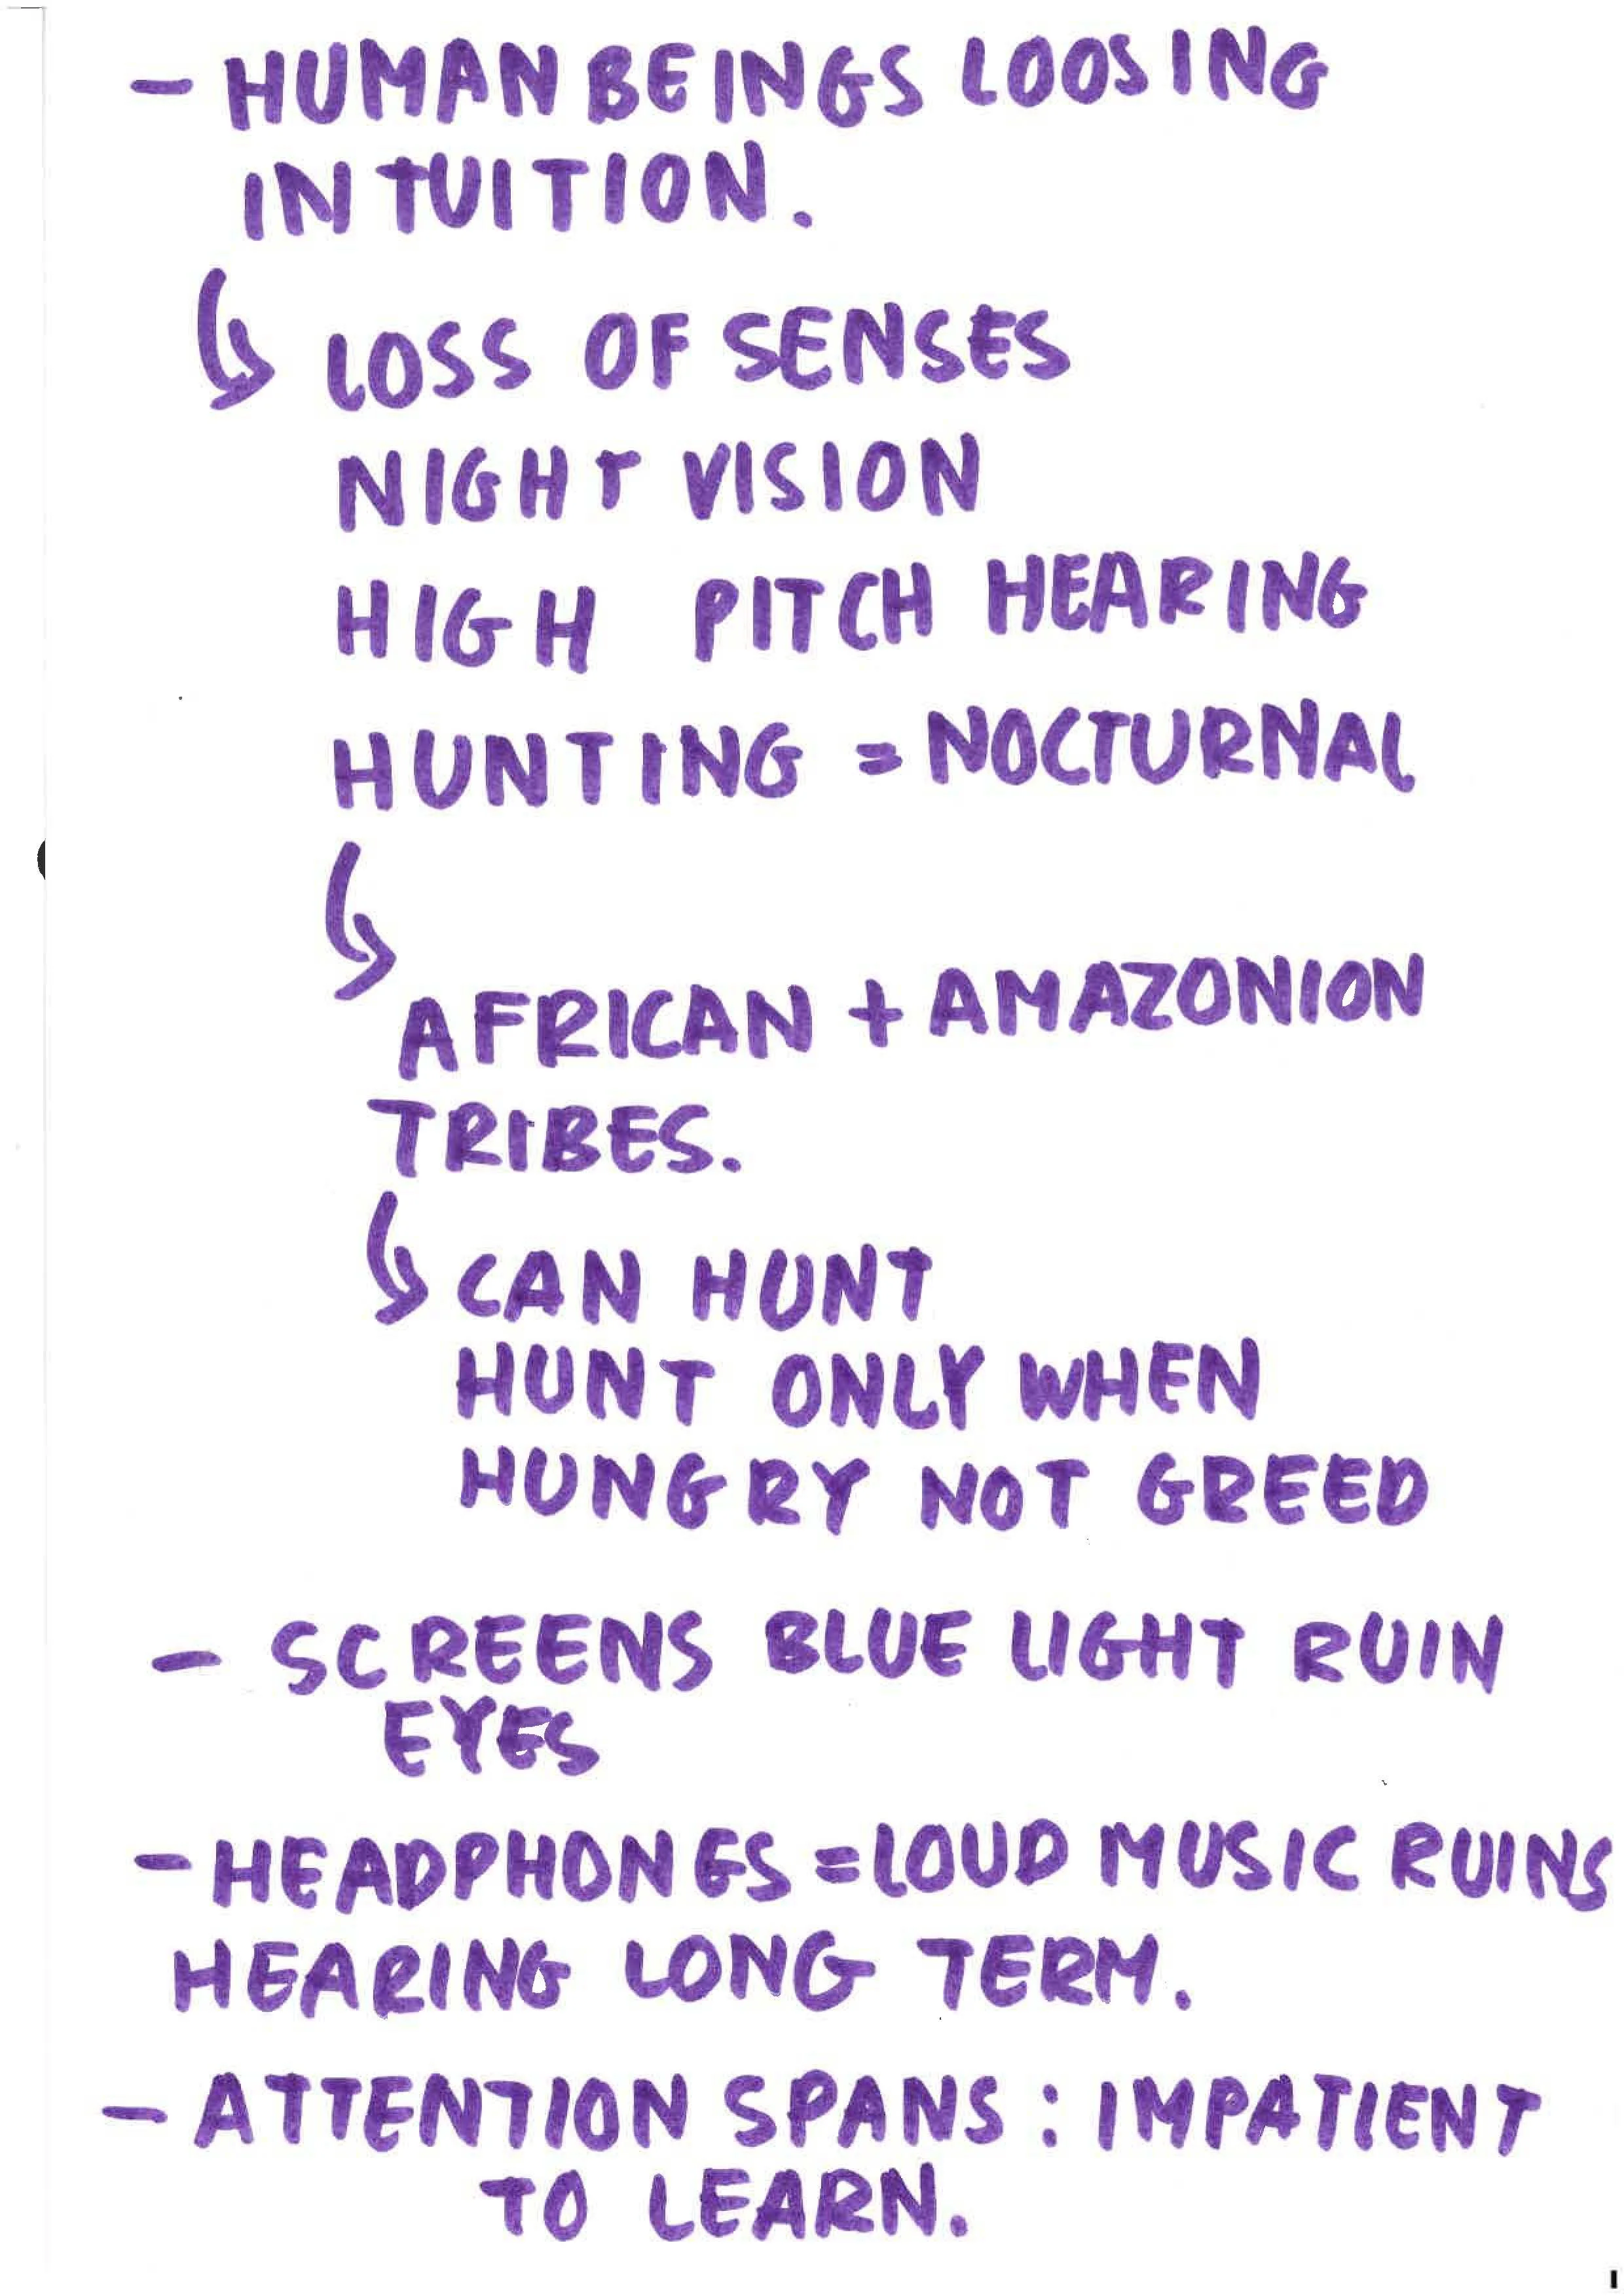 - HUMAN BEINGS LOOSING
INTUITION.
↳ LOSS OF SENSES
NIGHT VISION
HIGH PITCH HEARING
HUNTING = NOCTURNAL
↳
AFRICAN + AMAZONION
TRIBES.
↳ CAN HUNT
HUNT ONLY WHEN
HUNGRY NOT GREED
- SCREENS BLUE LIGHT RUIN
EYES
- HEADPHONES = LOUD MUSIC RUINS
HEARING LONG TERM.
- ATTENTION SPANS : IMPATIENT
TO LEARN.